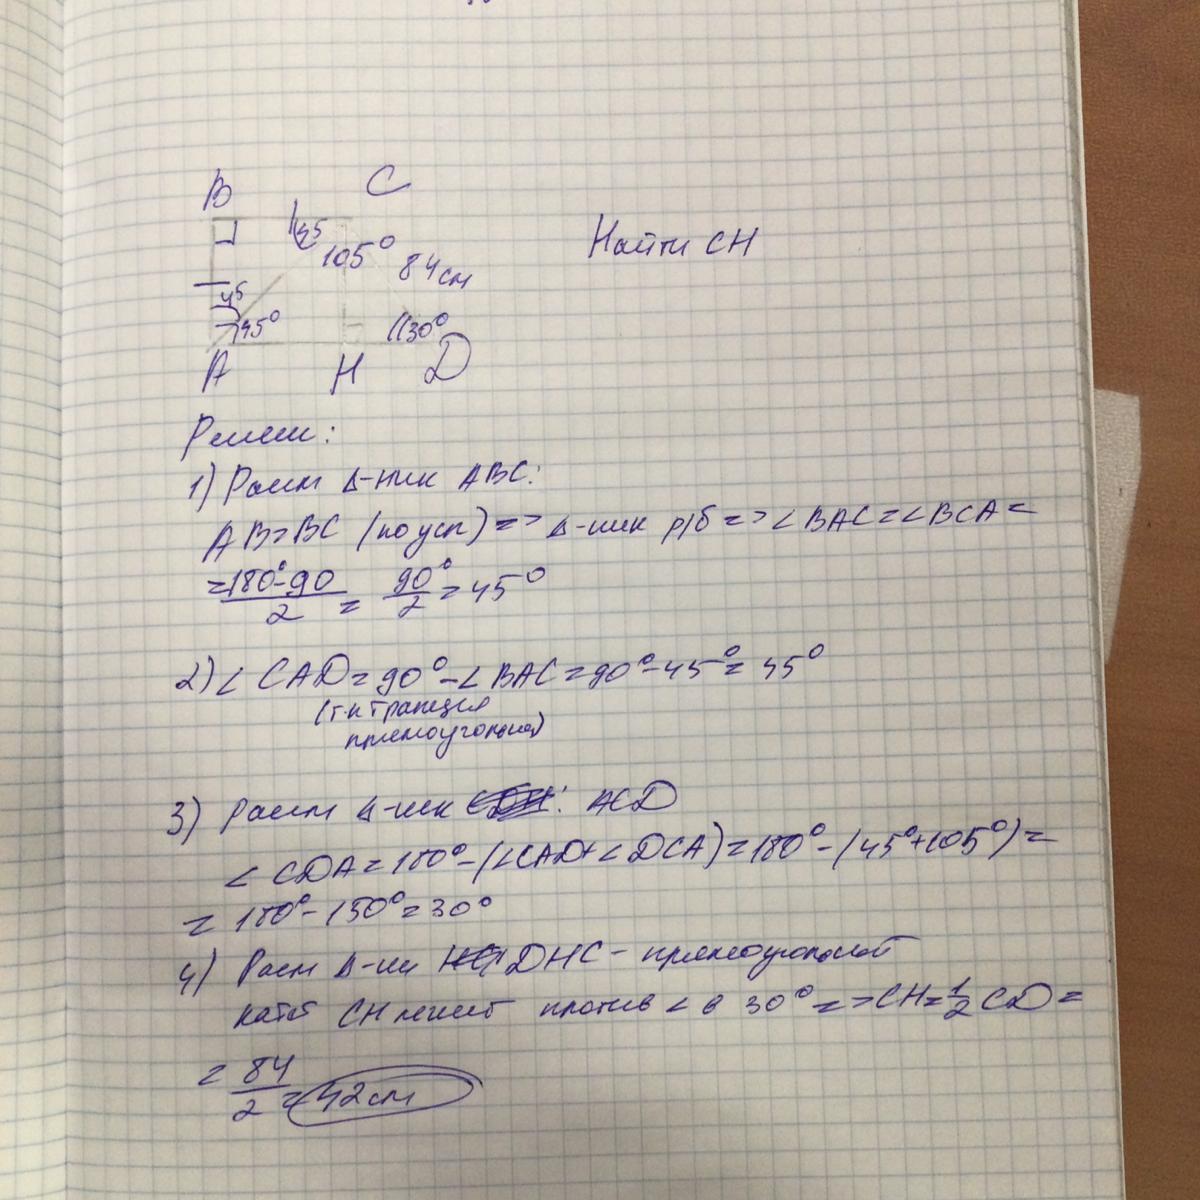 B C
45
105° 84 см
Найти CH
45
45° 30°
A H D
Решен:
1) Рассм Δ-ник ABC:
AB=BC (по усл) => Δ-ник р/б => ∠BAC=∠BCA=
= 180°-90 / 2 = 90° / 2 = 45°
2) ∠CAD=90°-∠BAC=90°-45°=45°
(т.к трапеция
прямоугольная)
3) Рассм Δ-ник ACD
∠CDA=180°-(∠CAD+∠DCA)=180°-(45°+105°)=
= 180°-150°=30°
4) Рассм Δ-ик DHC - прямоугольный
катет CH лежит против ∠ в 30° => CH=1/2 CD=
= 84 / 2 = 42 см